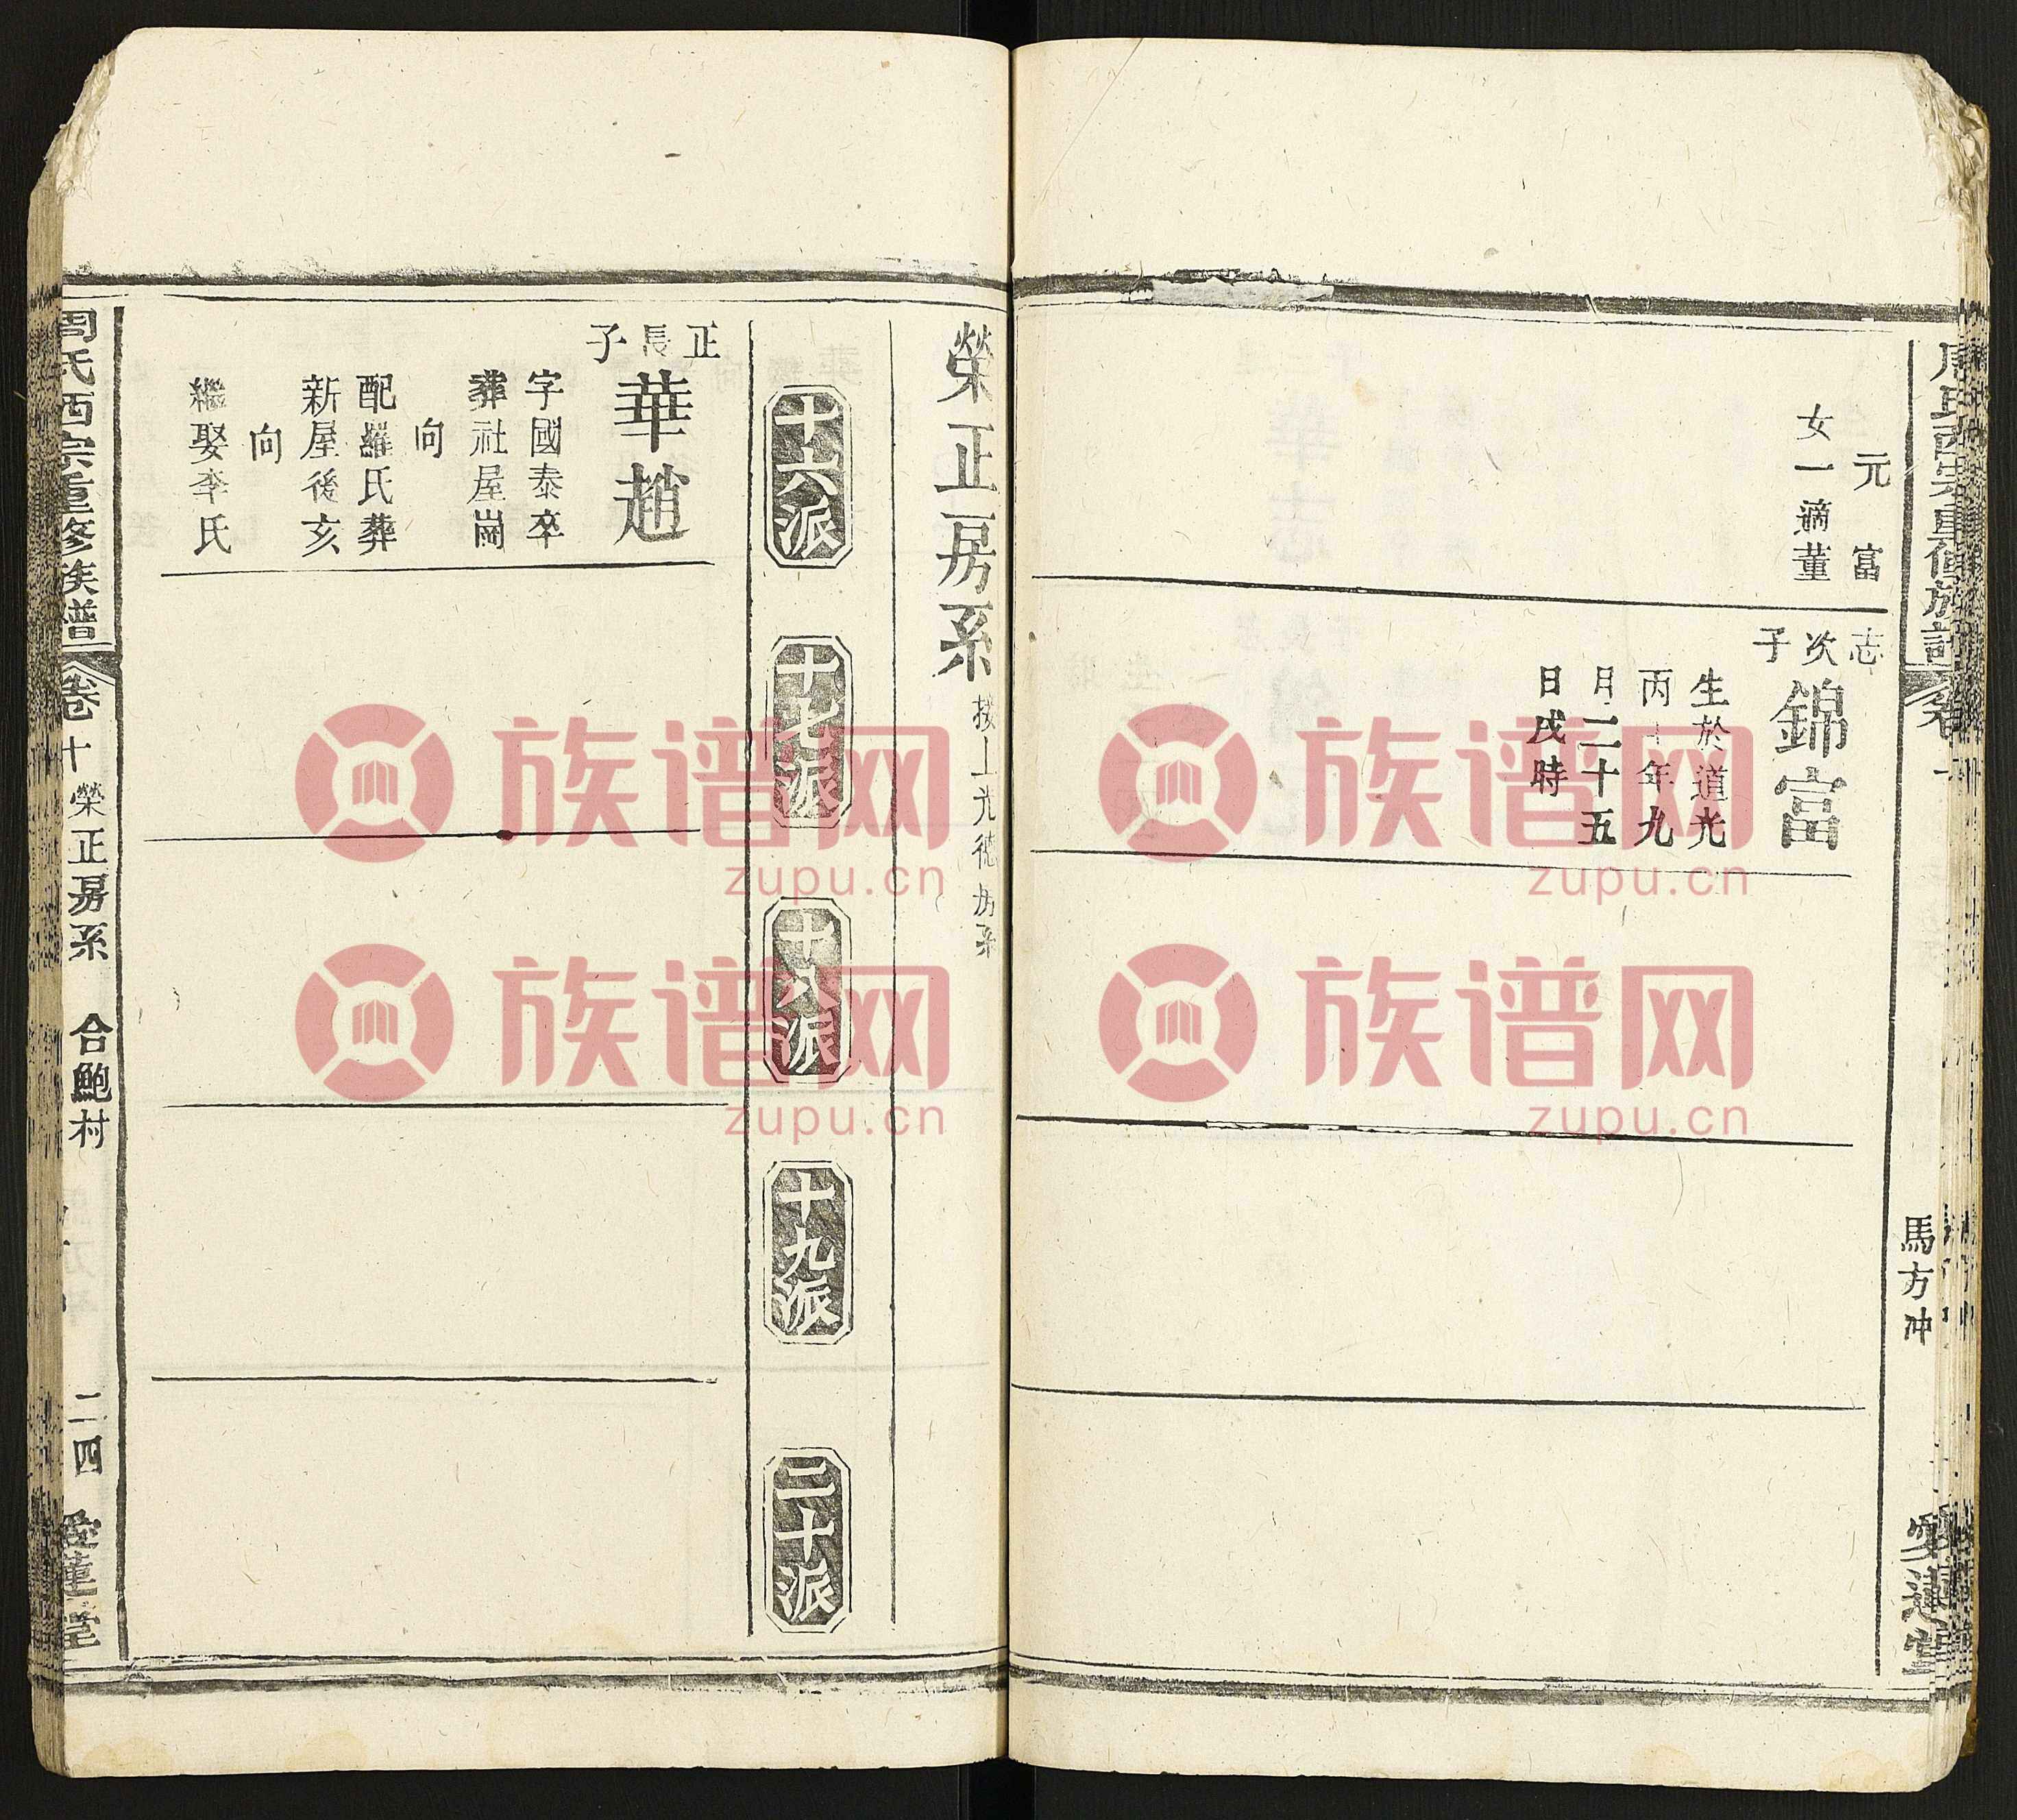 馬方冲
元富
女一適董
志次子
錦富
生於道光
丙 年九
月二十五
日戌時
榮正房系
接上光德房系
十六派
十七派
十八派
十九派
二十派
正長子
華趙
字國泰卒
葬社屋崗
向
配羅氏葬
新屋後亥
向
繼娶李氏
周氏西宗重修族譜
卷十
榮正房系
合鮑村
二四
愛蓮堂
族谱网
zupu.cn
族谱网
zupu.cn
族谱网
zupu.cn
族谱网
zupu.cn